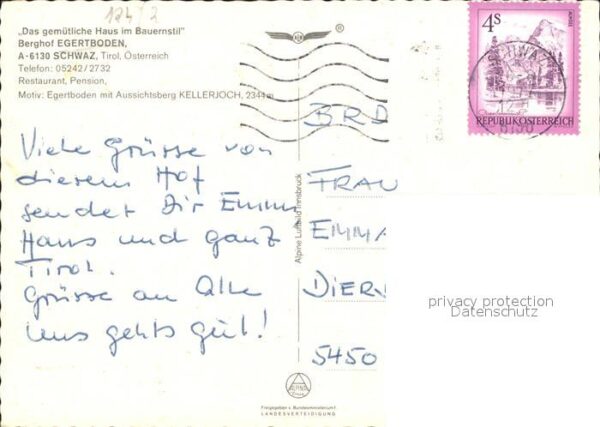 1242
"Das gemütliche Haus im Bauernstil"
Berghof EGERTBODEN,
A-6130 SCHWAZ, Tirol, Österreich
Telefon: 05242/2732
Restaurant, Pension,
Motiv: Egertboden mit Aussichtsberg KELLERJOCH, 2344m
®
4S
REPUBLIK ÖSTERREICH
SCHWAZ
6130
Viele Grüsse von
diesem Hof
sendet Dir Emmi
Hans und ganz
Tirol.
Grüsse an Alle
Uns gehts gut!
BRD
FRAU
EMMA
DIER
5450
Alpine Luftbild Innsbruck
privacy protection
Datenschutz
Freigegeben v. Bundesministerium f.
LANDESVERTEIDIGUNG